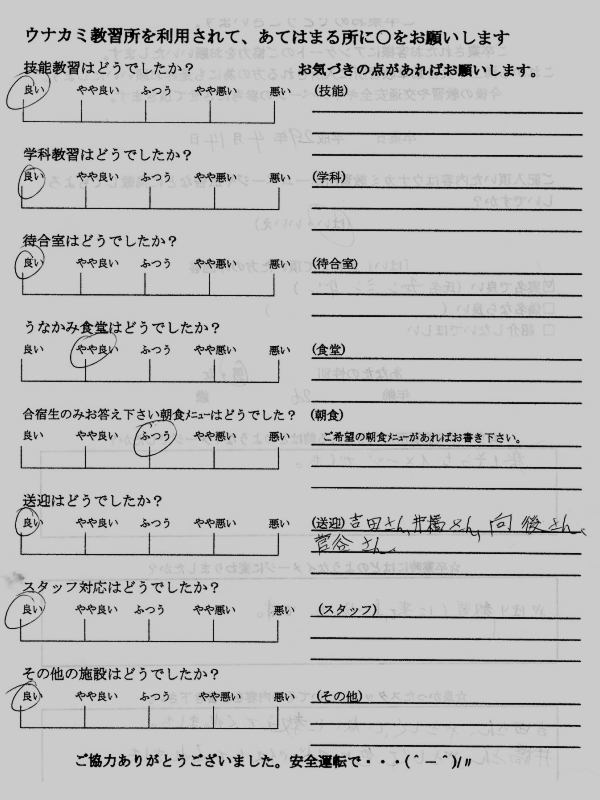 ウナカミ教習所を利用されて、あてはまる所に○をお願いします
技能教習はどうでしたか？
良い やや良い ふつう やや悪い 悪い
お気づきの点があればお願いします。
(技能)
学科教習はどうでしたか？
良い やや良い ふつう やや悪い 悪い
(学科)
待合室はどうでしたか？
良い やや良い ふつう やや悪い 悪い
(待合室)
うなかみ食堂はどうでしたか？
良い やや良い ふつう やや悪い 悪い
(食堂)
合宿生のみお答え下さい朝食ﾒﾆｭｰはどうでしたか？
良い やや良い ふつう やや悪い 悪い
(朝食)
ご希望の朝食ﾒﾆｭｰがあればお書き下さい。
送迎はどうでしたか？
良い やや良い ふつう やや悪い 悪い
(送迎) 吉田さん、井橋さん、向後さん、
菅谷さん、
スタッフ対応はどうでしたか？
良い やや良い ふつう やや悪い 悪い
(スタッフ)
その他の施設はどうでしたか？
良い やや良い ふつう やや悪い 悪い
(その他)
ご協力ありがとうございました。安全運転で・・・(＾－＾)/〃